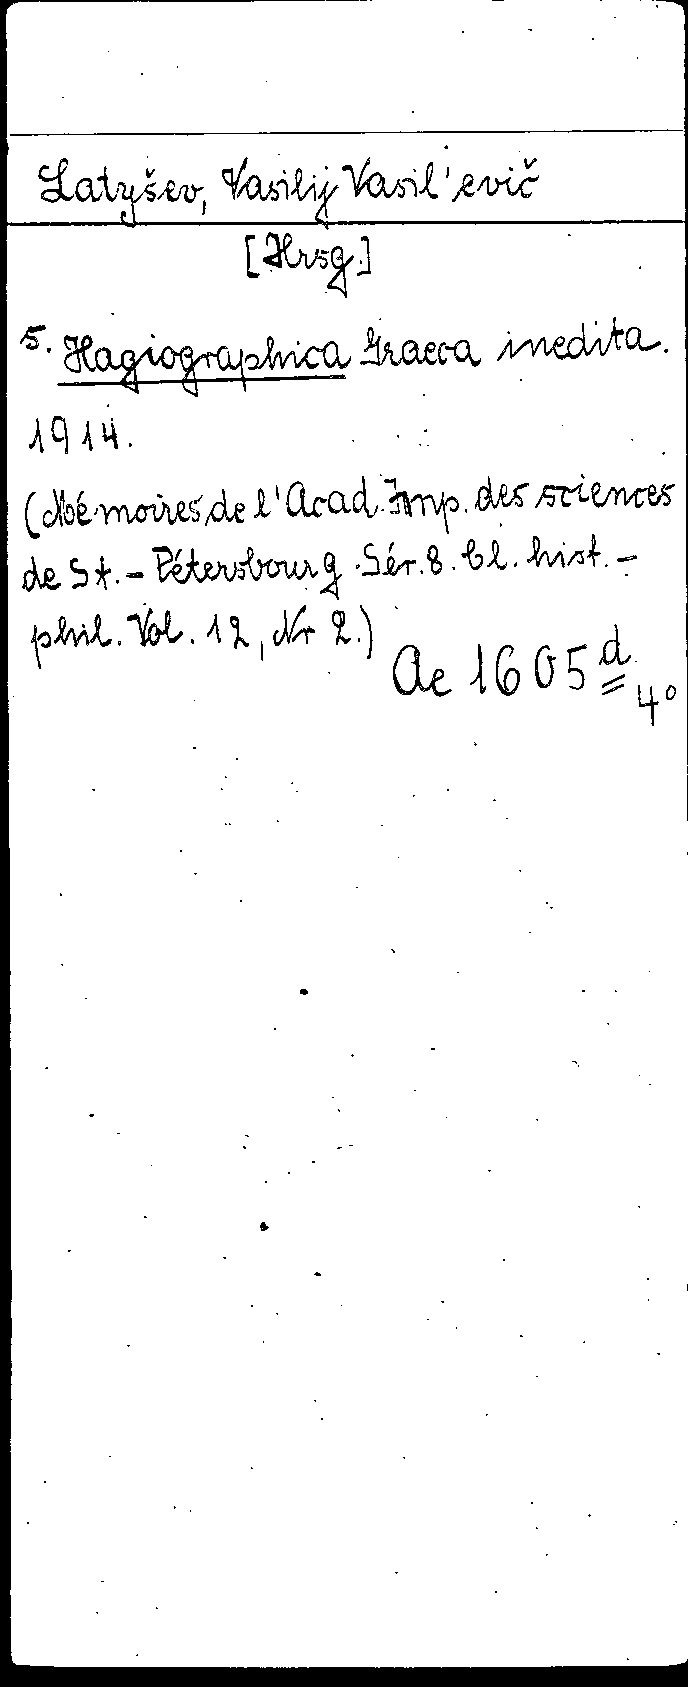 Latyšev, Vasilij Vasil'evič
[Hrsg.]
5. Hagiographica Graeca inedita.
1914.
(Mémoires de l'Acad. Imp. des sciences
de St.-Pétersbourg. Sér. 8. Cl. hist.-
phil. Vol. 12, Nr 2.)
Ae 1605 d 4°